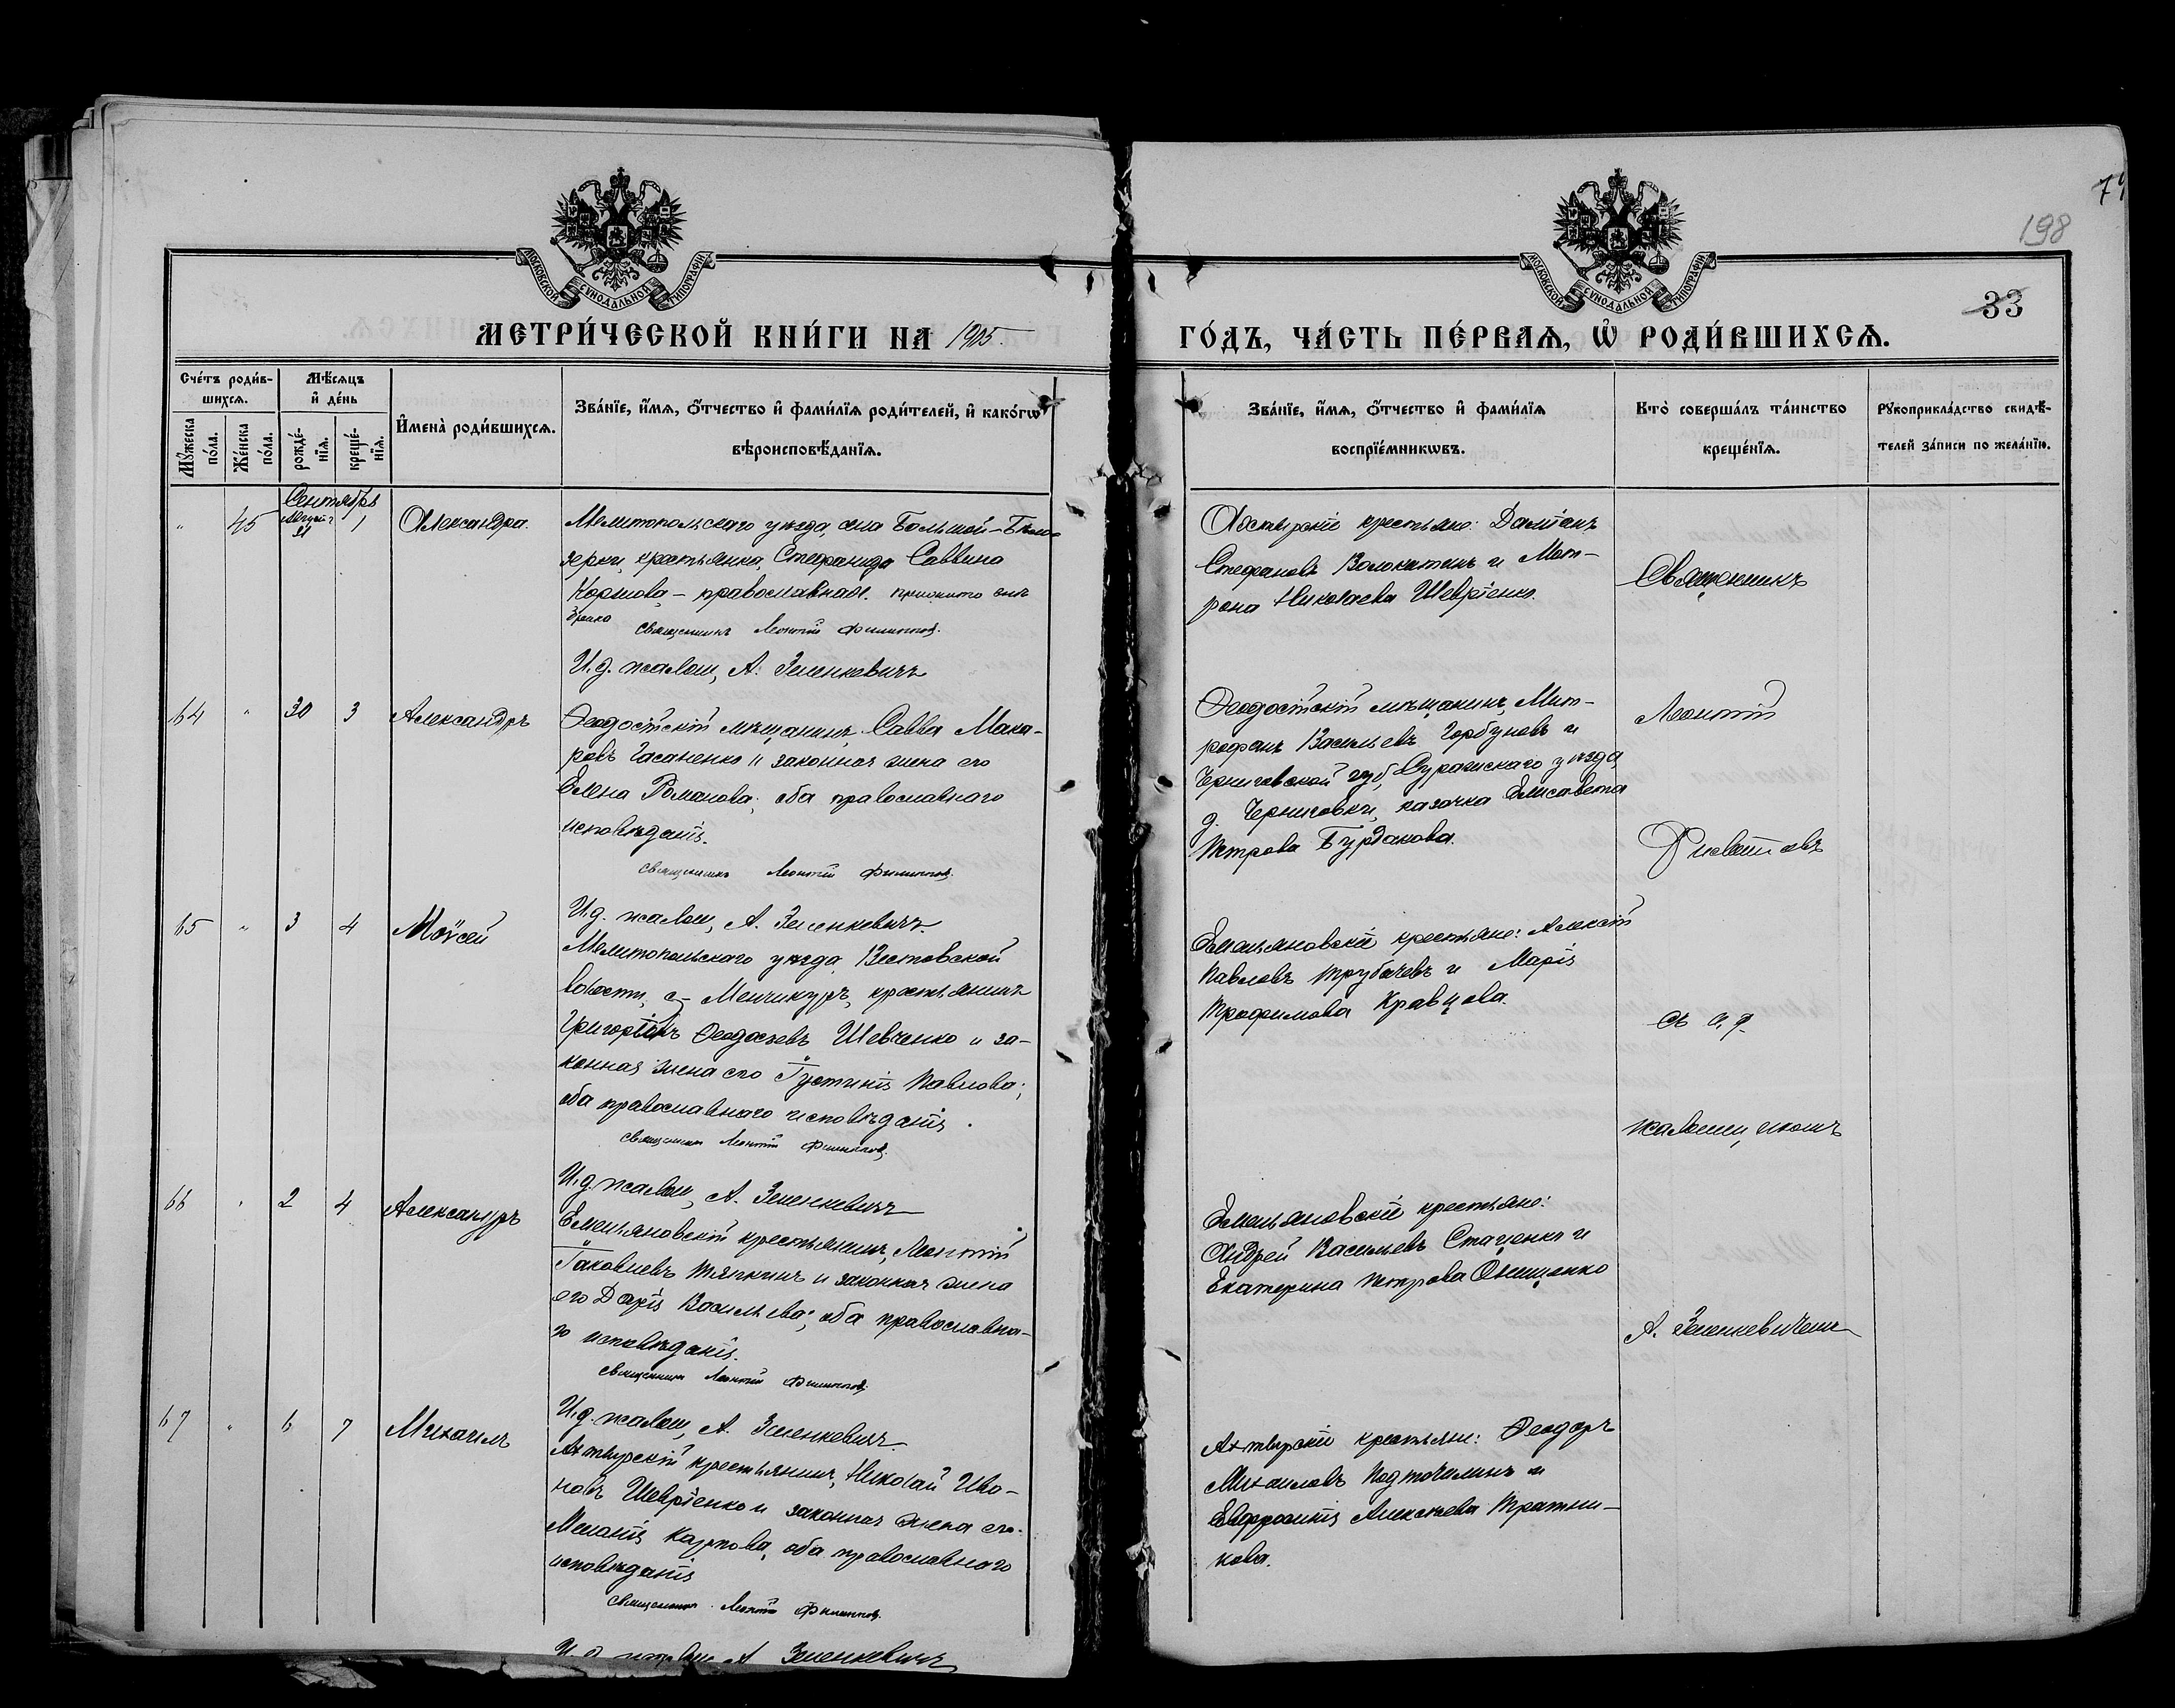 74
198
33
МОСКОВСКОЙ СУНОДАЛЬНОЙ ТИПОГРАФІИ
МОСКОВСКОЙ СУНОДАЛЬНОЙ ТИПОГРАФІИ
МЕТРИ́ЧЕСКОЙ КНИ́ГИ НА 1905.
ГО́ДЪ, ЧА́СТЬ ПЕ́РВАѦ, Ѡ҆ РОДИ́ВШИХСѦ.
Сче́тъ роди́в-
шихсѧ.
Мѣ́сѧцъ
и҆ де́нь
Мꙋ́жеска по́ла.
Же́нска по́ла.
рожде́-
нїѧ.
креще́-
нїѧ.
И҆мена̀ роди́вшихсѧ.
Зва́нїе, и҆́мѧ, ѻ҆́тчество и҆ фами́лїѧ роди́телей, и҆ како́гѡ
вѣроисповѣ́данїѧ.
Зва́нїе, и҆́мѧ, ѻ҆́тчество и҆ фами́лїѧ
воспрїе́мникѡвъ.
Кто̀ соверша́лъ та́инство
креще́нїѧ.
Рꙋкоприкла́дство свидѣ́-
телей за́писи по жела́нїю.
Сентябрь
" 45 Август 31 1 Александра.
Мелитопольскаго уѣзда, села Большой-Бѣло-
зерки, крестьянка, Стефанида Саввина
Коршова, - православная. прижито внѣ
брака
священникъ Леонтій Филиппов.
И.д. псаломщ, А. Зененкевичъ
Ахтырскіе крестьяне: Даміанъ
Стефановъ Волокитенъ и Мат-
рона Николаева Шевріенко.
Священникъ
64 " 30 3 Александръ
Ѳеодосійскій мѣщанинъ, Савва Мака-
ровъ Гасаненко и законная жена его
Елена Романова; оба православнаго
исповѣданія.
священникъ Леонтій Филиппов.
И.д. псаломщ, А. Зененкевичъ
Ѳеодосійскій мѣщанинъ, Мит-
рофанъ Васильевъ Горбуновъ и
Черниговской губ, Суражскаго уѣзда,
д. Черниговки, казачка Елисавета
Петрова Бурдакова.
Леонтій
65 " 3 4 Моѵсей
Мелитопольскаго уѣзда, Веселовской
волости, с- Менчикуръ, крестьянинъ
Григорій Ѳеодосіевъ Шевченко и за-
конная жена его Іустинія Павлова;
оба православнаго исповѣданія.
священникъ Леонтій Филиппов.
И.д. псаломщ, А. Зененкевичъ
Емельяновскіе крестьяне: Алексій
Павловъ Трубачевъ и Марія
Трофимова Кравцова.
съ и. д.
псаломщикомъ
66 " 2 4 Александръ
Емельяновскій крестьянинъ, Леонтій
Іаковлевъ Тяпкинъ и законная жена
его Дарія Васильева; оба православна-
го исповѣданія.
священникъ Леонтій Филиппов.
И.д. псаломщ, А. Зененкевичъ
Емельяновскіе крестьяне:
Андрей Васильевъ Стаценко и
Екатерина Петрова Онищенко
А. Зененкевичемъ
67 " 6 7 Михаилъ
Ахтырскій крестьянинъ, Николай Ива-
новъ Шевріенко и законная жена его
Меланія Карпова, оба православнаго
исповѣданія
священникъ Леонтій Филиппов.
И.д. псаломщ А. Зененкевичъ
Ахтырскіе крестьяне: Ѳеодоръ
Михаиловъ Подточилинъ и
Евфросинія Алексѣева Тратни-
кова.